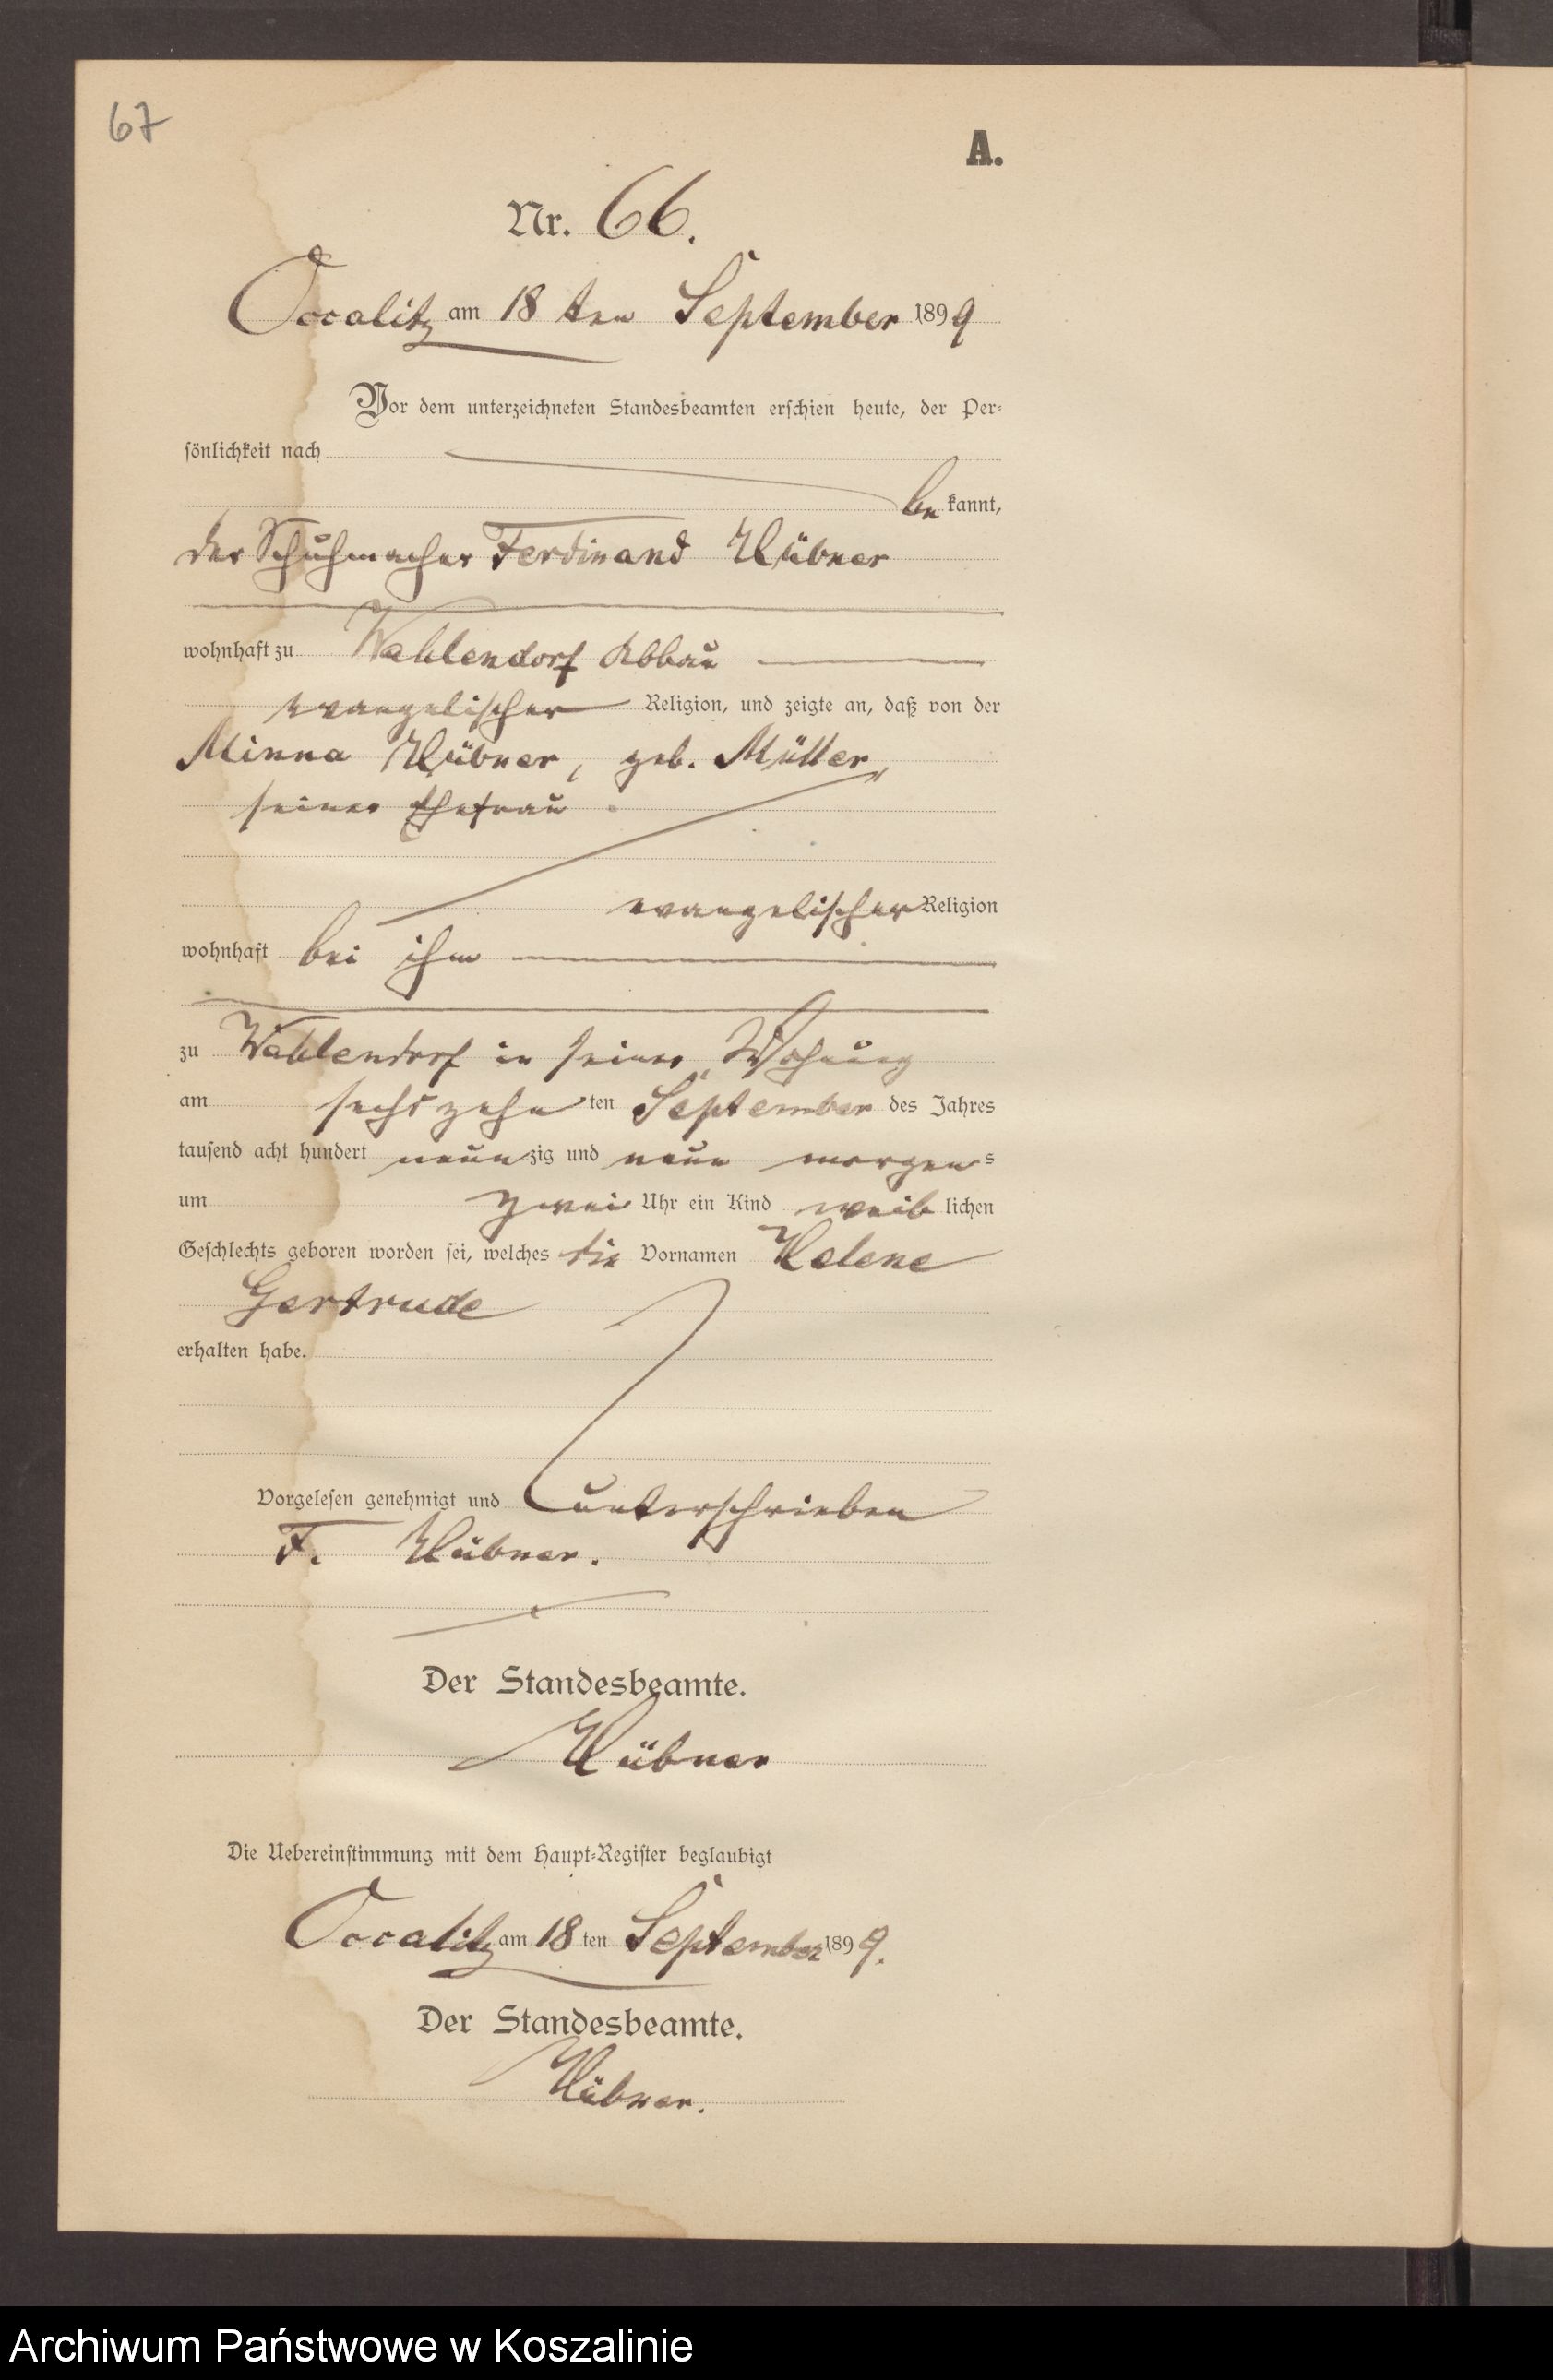 67
A.
Nr. 66.
Occalitz am 18 ten September 1899
Vor dem unterzeichneten Standesbeamten erschien heute, der Per-
sönlichkeit nach
be kannt,
der Schuhmacher Ferdinand Hübner
wohnhaft zu Wahlendorf Abbau
evangelischer Religion, und zeigte an, daß von der
Minna Hübner, geb. Müller,
seiner Ehefrau
evangelischer Religion
wohnhaft bei ihm
zu Wahlendorf in seiner Wohnung
am sechszehn ten September des Jahres
tausend acht hundert neun zig und neun morgens
um zwei Uhr ein Kind weib lichen
Geschlechts geboren worden sei, welches die Vornamen Helene
Gertrude
erhalten habe.
Vorgelesen genehmigt und unterschrieben
F. Hübner.
Der Standesbeamte.
Hübner
Die Uebereinstimmung mit dem Haupt-Register beglaubigt
Occalitz am 18 ten September 1899.
Der Standesbeamte.
Hübner.
Archiwum Państwowe w Koszalinie